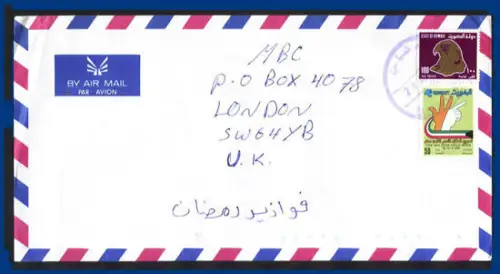 MBC
P.O BOX 4078
LONDON
SW64YB
U.K.
BY AIR MAIL
PAR AVION
فوازير رمضان
STATE OF KUWAIT
دولة الكويت
100
١٠٠
KUWAIT
الكويت
50